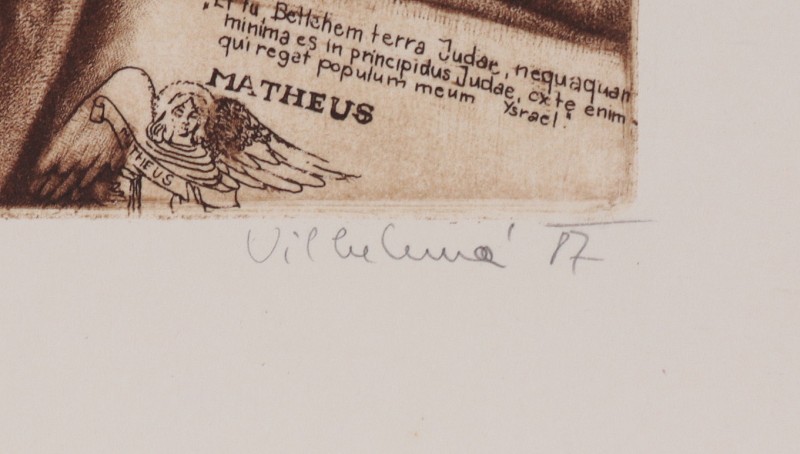 „Et tu, Betlehem terra Judae, nequaquam
minima es in principidus Judae, ex te enim
qui regat populum meum Ysrael."
MATHEUS
MATHEUS
Vilhelmová 87